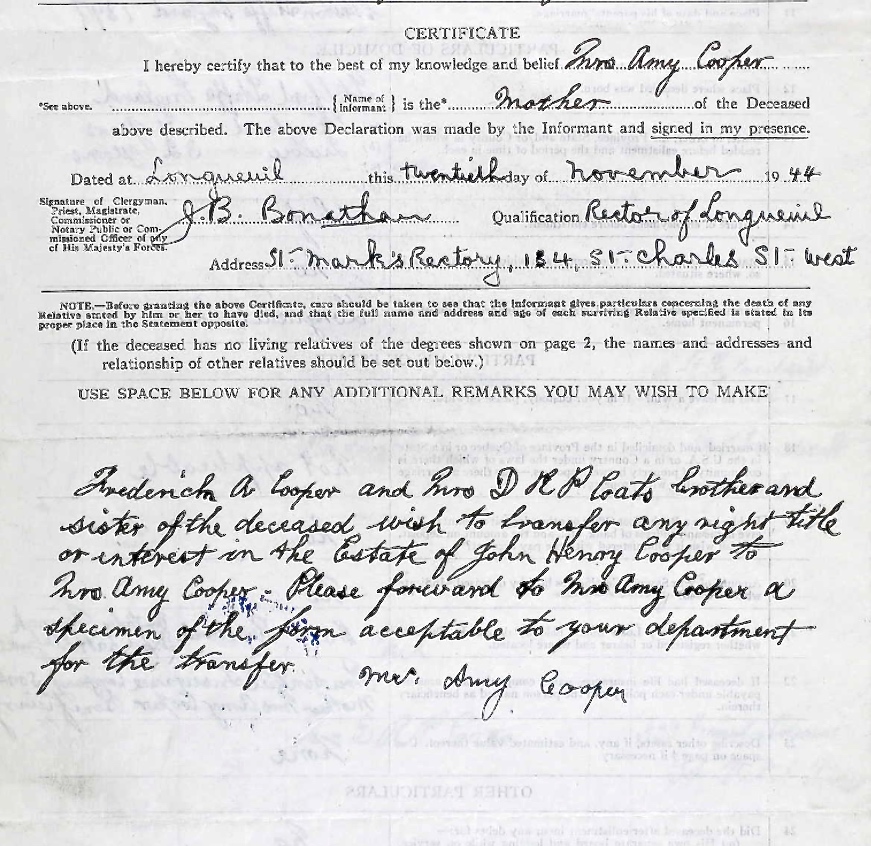 CERTIFICATE
I hereby certify that to the best of my knowledge and belief Mrs Amy Cooper
*See above. {Name of Informant} is the* Mother of the Deceased
above described. The above Declaration was made by the Informant and signed in my presence.
Dated at Longueuil this twentieth day of November 1944
Signature of Clergyman, Priest, Magistrate, Commissioner or Notary Public or Commissioned Officer of any of His Majesty's Forces. J. B. Bonathan Qualification Rector of Longueuil
Address St. Mark's Rectory, 184, St. Charles St. West
NOTE.—Before granting the above Certificate, care should be taken to see that the Informant gives particulars concerning the death of any
Relative stated by him or her to have died, and that the full name and address and age of each surviving Relative specified is stated in its
proper place in the Statement opposite.
(If the deceased has no living relatives of the degrees shown on page 2, the names and addresses and
relationship of other relatives should be set out below.)
USE SPACE BELOW FOR ANY ADDITIONAL REMARKS YOU MAY WISH TO MAKE
Frederick A Cooper and Mrs D R P Coats brother and
sister of the deceased wish to transfer any right title
or interest in the Estate of John Henry Cooper to
Mrs. Amy Cooper. Please forward to Mrs Amy Cooper a
specimen of the form acceptable to your department
for the transfer.
Mrs. Amy Cooper